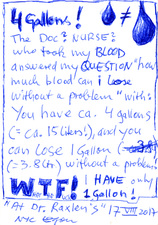 4 gallons! ≠
The Doc? NURSE?
who took my BLOOD
answered my QUESTION "how
much blood can I loose
without a problem" with:
You have ca. 4 gallons
(= ca. 15 liters!), and you
can lose 1 Gallon
(-3.8 ltr) without a problem!
W.T.F! I HAVE only
1 gallon!
"At Dr. Raxlen's" 17 VIII 2017
NYC